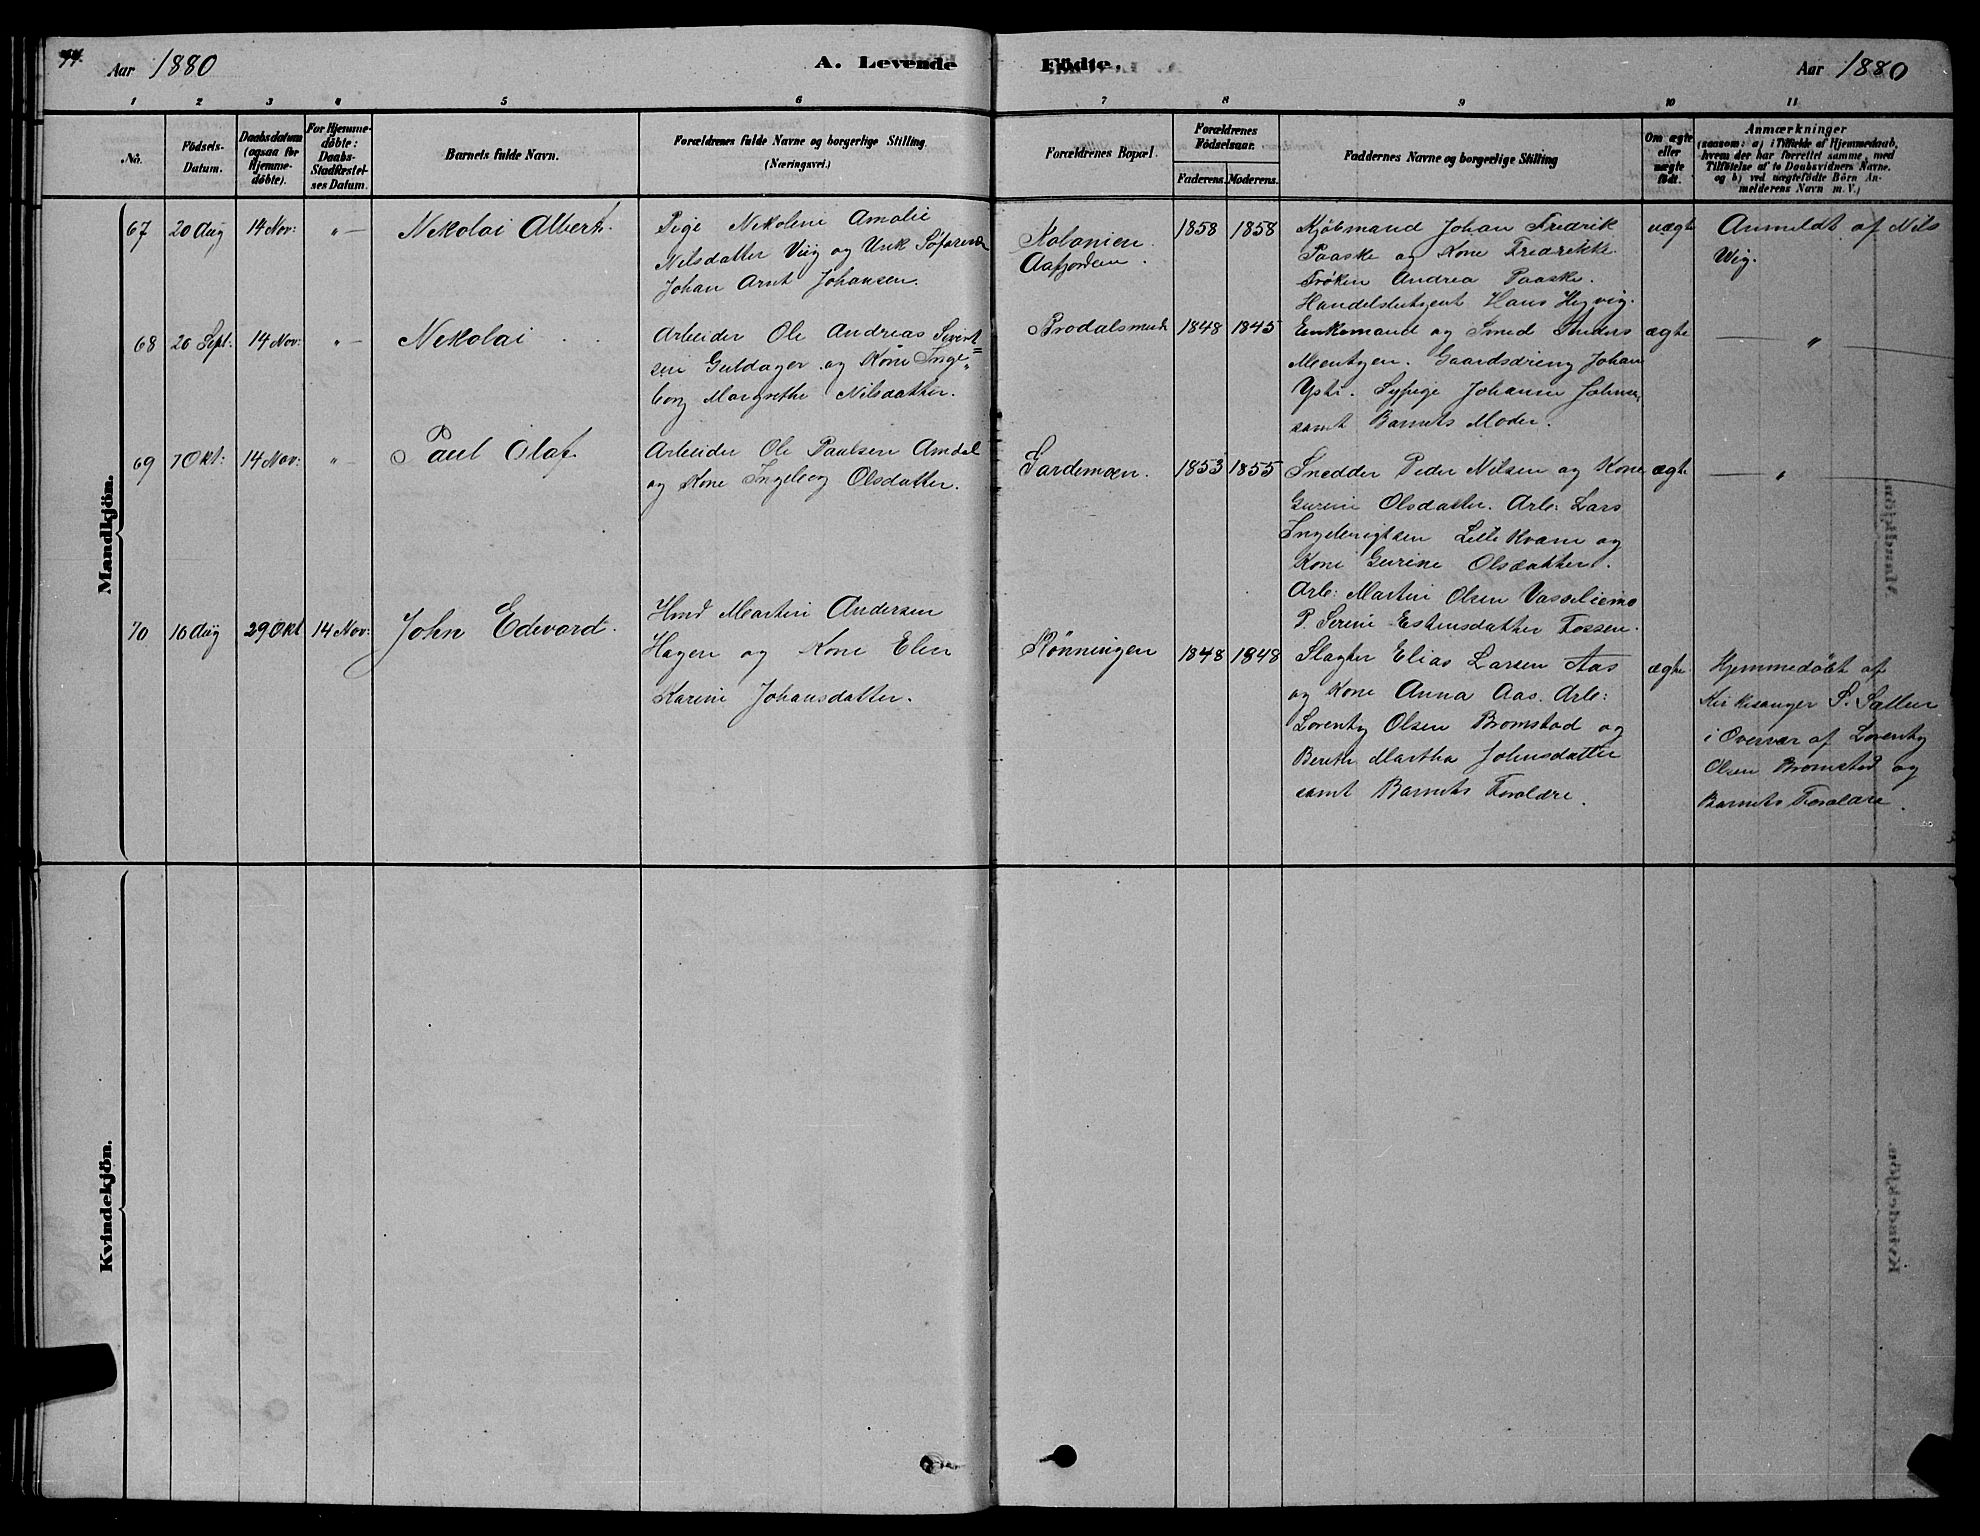 44.
Aar 1880
A. Levende
Födte.
Aar 1880
1
2
3
4
5
6
7
8
9
10
11
No.
Födsels-
Datum.
Daabsdatum
(ogsaa for
Hjemme-
døbte).
For Hjemme-
døbte:
Daabs-
Stadfæstel-
ses Datum.
Barnets fulde Navn.
Forældrenes fulde Navne og borgerlige Stilling
(Næringsvei.)
Forældrenes Bopæl.
Forældrenes
Födselsaar.
Faderens.
Moderens.
Faddernes Navne og borgerlige Stilling
Om ægte
eller
uægte
födt.
Anmærkninger
(saasom: a) i Tilfælde af Hjemmedaab,
hvem der har forrettet samme, med
Tilföielse af to Daabsvidners Navne.
og b) ved uægtefödte Börn An-
melderens Navn m. V.)
Mandkjön.
67
20 Aug
14 Nov:
" —
Nekolai Albert.
Pige Nekoline Amalie
Nilsdatter Viig og Unk Søfarende
Johan Arnt Johansen.
Kolonien.
Aafjorden.
1858
1858
Kjøbmand Johan Fredrik
Paaske og Kone Fredrikke.
Frøken Andrea Paaske.
Handelsbetjent Hans Hegvig.
uægte
Anmeldt af Nils
Wig.
68
20 Sept:
14 Nov:
" —
Nekolai
Arbeider Ole Andreas Sivert=
sen Guldager og Kone Inge„
borg Margrethe Nilsdatter.
Brodalsmark
1848
1845
Enkemand og Smed Anders
Mentzen. Gaardsdreng Johan
Ysti. Sypige Johanne Johnsen
samt Barnets Moder.
ægte
"
69
7 Okt:
14 Nov:
" —
Paul Olaf
Arbeider Ole Paulsen Amdal
og Kone Ingeborg Olsdatter.
Fardemoen.
1853
1855
Snedder Peder Nilsen og Kone
Gurine Olsdatter. Arb: Lars
Ingebrigtsen Lille Kvam og
Kone Gurine Olsdatter.
Arb: Martin Olsen Vasseliemo
P. Serine Estensdatter Fossen.
ægte
"
70
16 Aug
29 Okt
14 Nov:
John Edvard.
Hmd Martin Andersen
Hagen og Kone Elen
Karine Johansdatter.
Rønningen
1848
1848
Slagter Elias Larsen Aas
og Kone Anna Aas. Arb:
Lorentz Olsen Bromstad og
Bereth Martha Johnsdatter
samt Barnets Forældre.
ægte
Hjemmedøbt af
Kirkesanger S. Sætter
i Overvær af Lorentz
Olsen Bromstad og
Barnets Forældre.
Kvindekjön.